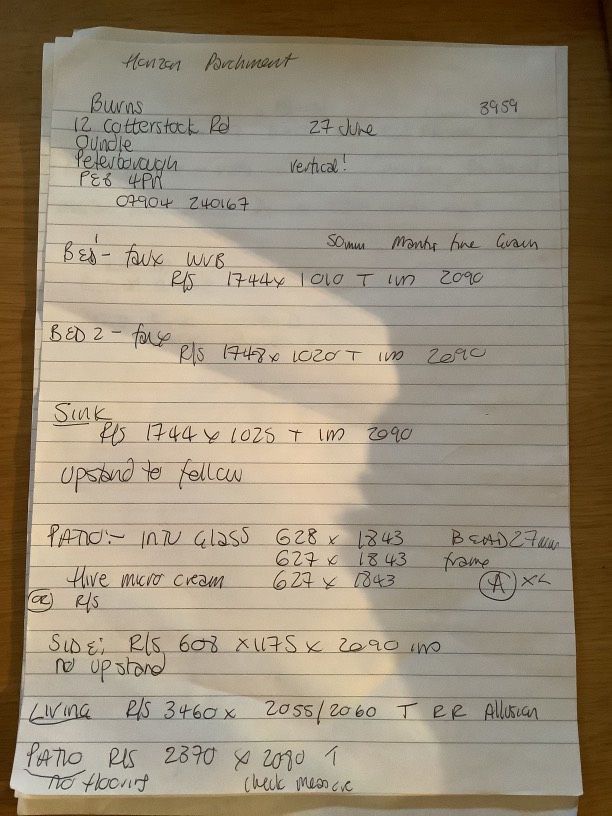 Hanzan Parchment
Burns 3959
12 Cotterstock Rd 27 June
Oundle
Peterborough vertical!
PE8 4PN
07904 240167
50mm Mantis fine Grain
BED 1 - faux WVB
R/S 1744 x 1010 T IM 2090
BED 2 - faux
R/S 1748 x 1020 T IM 2090
Sink
R/S 1744 x 1025 T IM 2090
Upstand to follow
PATIO:- INTU Glass 628 x 1843 BEAD 27mm
627 x 1843 frame
Hive micro cream 627 x 1843 A x4
OR R/S
SIDE: R/S 608 x 1175 x 2090 IM
no upstand
LIVING R/S 3460 x 2055/2060 T RR Allusion
PATIO R/S 2370 x 2080 T
no flooring check measure